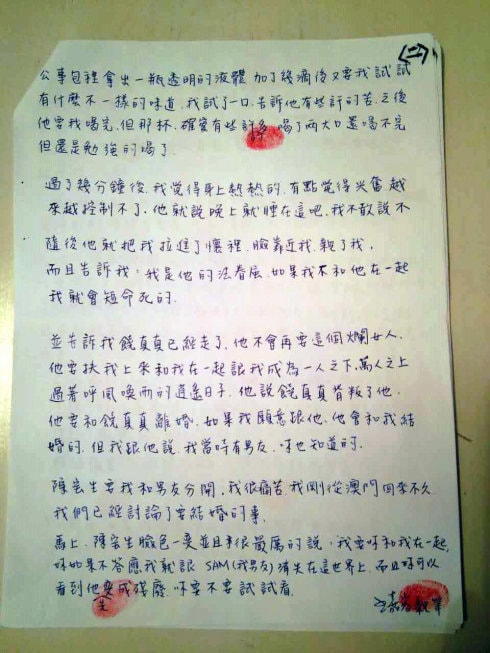 (二)
公事包裡拿出一瓶透明的液體 加了幾滴後又要我試試
有什麼不一樣的味道.我試了一口.告訴他有些許的苦.之後
他要我喝完.但那杯.確實有些許多.喝了兩大口還喝不完
但還是勉強的喝了.
過了幾分鐘後.我覺得身上熱熱的.有點覺得興奮 越
來越控制不了.他就說晚上就睡在這吧.我不敢說不
隨後他就把我拉進了懷裡.臉靠近我.親了我,
而且告訴我,我是他的法眷屬.如果我不和他在一起
我就會短命死的.
並告訴我饒真真已經走了.他不會再要這個爛女人.
他要扶我上來和我在一起 讓我成為一人之下,萬人之上
過著呼風喚雨的逍遙日子. 他說饒真真背叛了他.
他要和饒真真離婚. 如果我願意跟他.他會和我結
婚的.但我跟他說.我當時有男友.你也知道的.
陳宝生要我和男友分開.我很痛苦.我剛從澳門回來不久
我們已經討論了要結婚的事.
馬上.陳宝生臉色一變並且非很嚴厲的說,我要你和我在一起,
你如果不答應我就讓 SAM(我男友)消失在這世界上.而且你可以
看到他變成殘廢. 你要不要試試看.
生
親筆